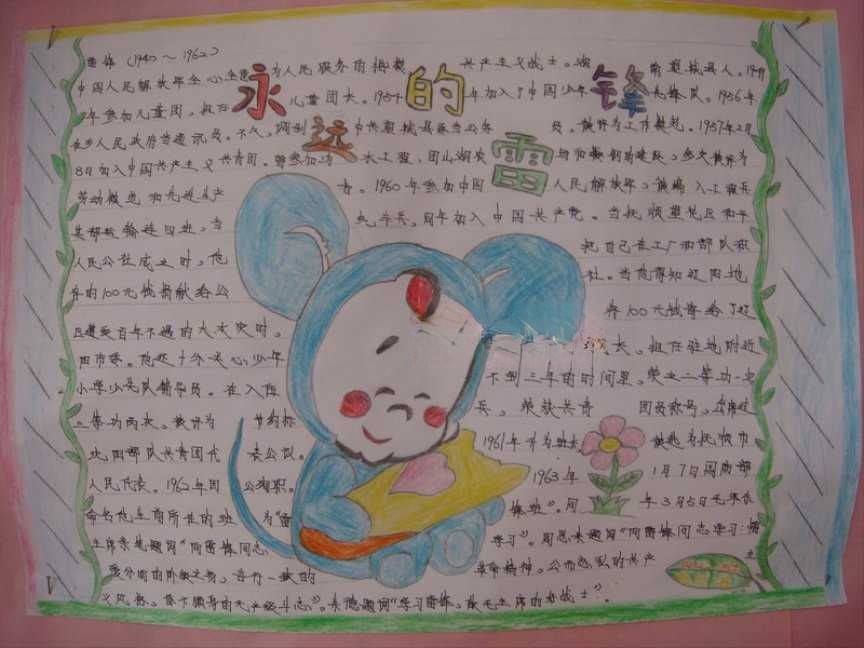 永远的雷锋
雷锋（1940～1962）
为人民服务的楷模 共产主义战士。湖
中国人民解放军全心全意 南望城县人。1949
年参加儿童团，担任 儿童团长。1954 年加入了中国少年 先锋队。1956年
在乡人民政府当通讯员。不久，调到 中共望城县委当公务 员，被评为工作模范。1957年2月
8日加入中国共产主义共青团。曾参加 水工程、团山湖农 和鞍钢的建设，多次被评为
劳动模范和先进生产 者。1960年参加中国 人民解放军，被编入工程兵
某部运输连四班，当 汽车兵，同年加入中国共产党。当抚顺望花区和平
人民公社成立时，他 把自己在工厂和部队积
存的100元钱捐献给公 社。当他得知辽阳地
区遭受百年不遇的大水灾时， 将100元钱寄给了辽
阳市委。他还十分关心少年 长，担任驻地附近
小学少先队辅导员。在入伍 不到三年的时间里，荣立二等功一次
三等功两次，被评为 节约标 兵，荣获共青 团员称号，出席过
沈阳部队共青团代 表会议。 1961年 被选为抚顺市
人民代表。1962年因 公殉职。 1963年 1月7日国防部
命名他生前所在的班 为“雷 锋班”。同 年3月5日毛泽东
主席亲笔题词“向雷锋同志 学习”。周恩来题词“向雷锋同志学习：憎
爱分明的阶级立场，言行一致的 革命精神，公而忘私的共产 主
义风格，奋不顾身的无产阶级斗志”。朱德题词“学习雷锋，做毛主席的好战士”。